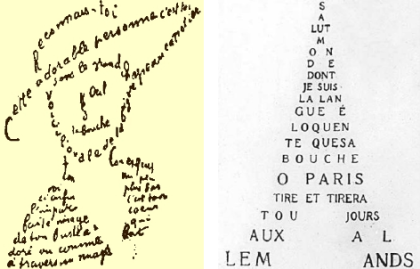 Reconnais-toi
Cette adorable personne c'est toi
sous le grand chapeau canotier
Œil
Nez
la bouche
Voici l'ovale de ta figure
ton cou exquis
voici enfin
l'imparfaite image
de ton buste adoré
vu comme
à travers un nuage
un peu
plus bas
c'est ton
cœur
qui
bat
S
A
LUT
M
O N
D E
DONT
JE SUIS
LA LAN
GUE É
LOQUEN
TE QUESA
BOUCHE
O PARIS
TIRE ET TIRERA
TOU JOURS
AUX A L
LEM ANDS